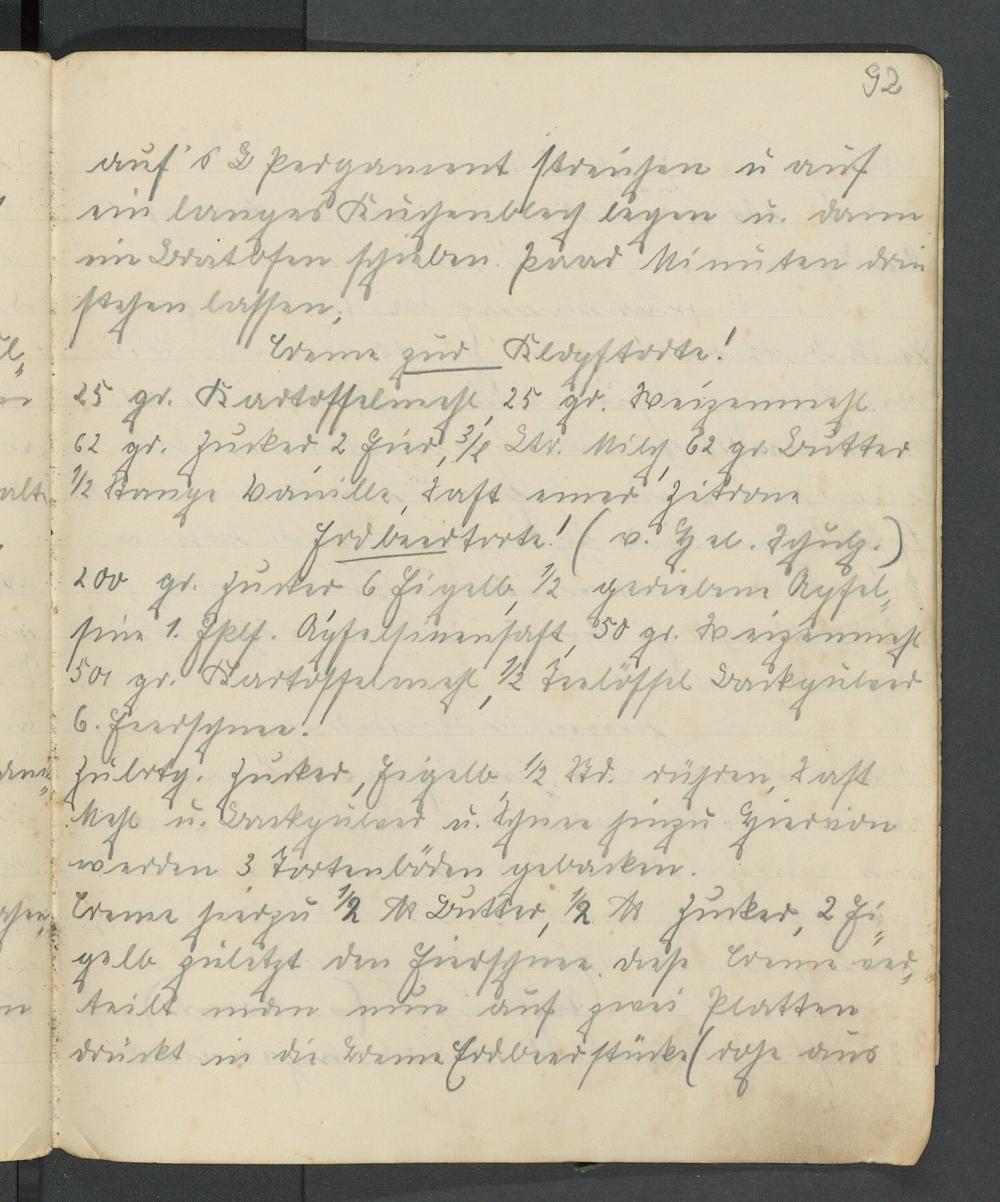 92
auf's Pergament streichen u auf
ein langes Kuchenblech legen u. dann
im Bratofen schieben. Paar Minuten drin
stehen lassen.
Creme zur Klopftorte!
25 gr. Kartoffelmehl, 25 gr. Weizenmehl
62 gr. Zucker, 2 Eier, 3/8 Ltr. Milch, 62 gr Butter
1/2 Stange Vanille, Saft einer Zitrone
Erdbeertorte! (v. Schulz.)
200 gr. Zucker 6 Eigelb, 1/2 geriebene Apfel„
sine 1. Apfelsinensaft, 50 gr. Weizenmehl
50 gr. Kartoffelmehl, 1/2 Teelöffel Backpulver
6. Eierschnee.
Zubrtg. Zucker, Eigelb 1/2 Std. rühren, Saft
Mehl u. Backpulver u. Schnee hinzu Hiervon
werden 3 Tortenböden gebacken.
Creme hierzu 1/2 ℔ Butter, 1/2 ℔ Zucker, 2 Ei„
gelb zuletzt den Eierschnee. diese Creme ver„
teilt man nun auf zwei Platten
drückt in die Creme Erdbeerstücke (rohe aus